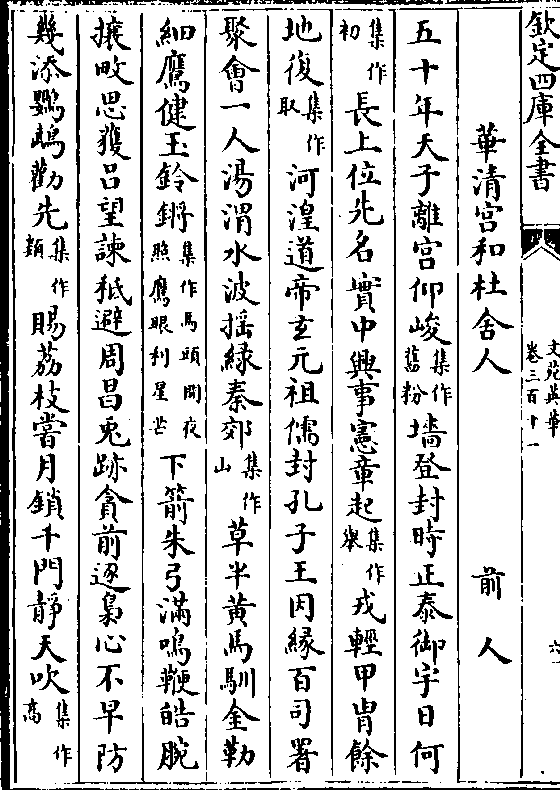 欽定四庫全書
文苑英華
卷三百十一
六
華清宮和杜舍人 前人
五十年天子離宮仰峻集作舊粉墻登封時正泰御宇日何
集作初長上位先名實中興事憲章起集作舉戎輕甲胄餘
地復集作取河湟道帝玄元祖儒封孔子王因緣百司署
聚會一人湯渭水波揺緑秦郊集作山草半黄馬馴金勒
細鷹健玉鈴鏘集作馬頭開夜照鷹眼利星芒下箭朱弓滿鳴鞭皓腕
攘畋思獲吕望諫秪避周昌兎跡貪前逐梟心不早防
㡬添鸚鵡勸先集作頻賜荔枝嘗月鎖千門靜天吹集作高